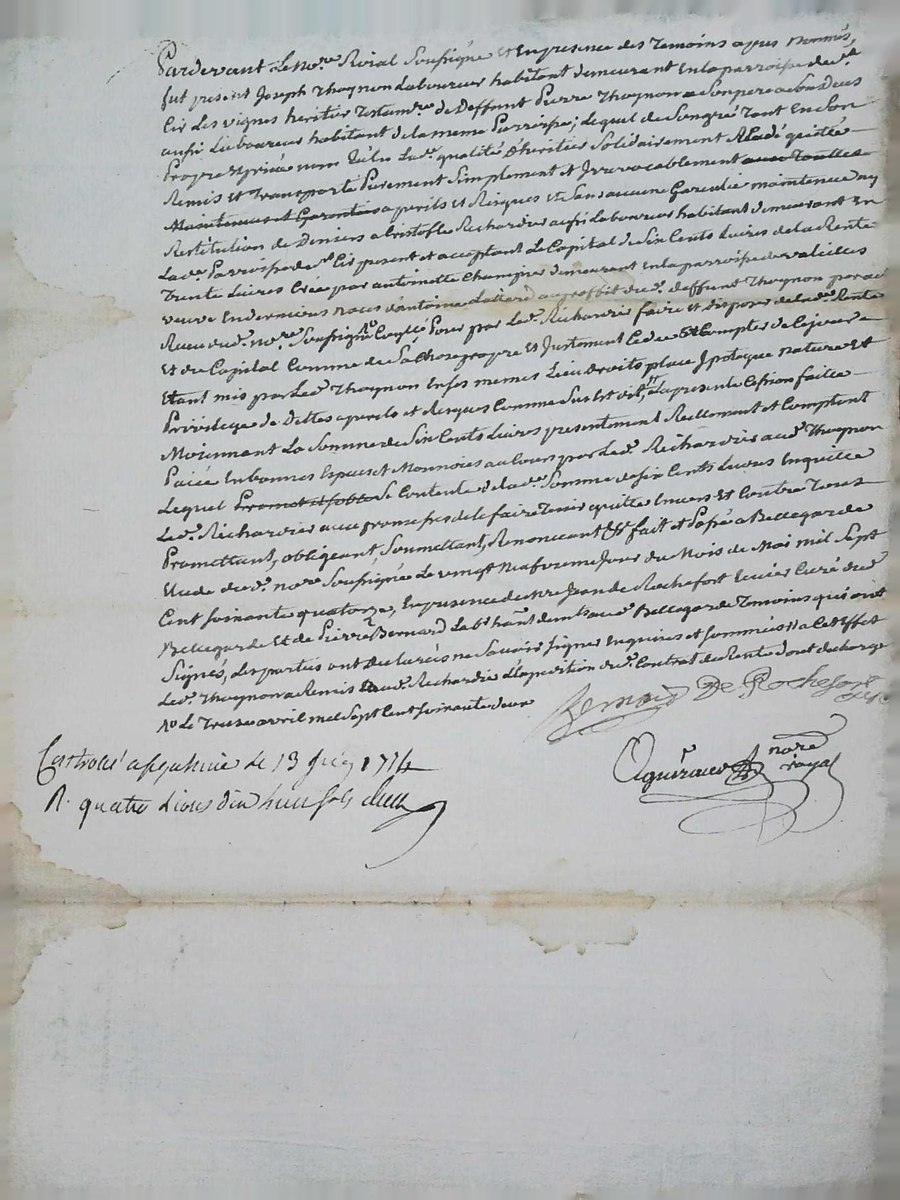 Pardevant Le No.re Roial Soussigné Et En presence des Temoins apres Nommés,
fut present Joseph Thoynon Laboureur habitant demeurant En la parroisse de St
Cir Les vignes heritier Testam.re de Deffunt Pierre Thoynon son pere
aussi Laboureur habitant de la meme Parroisse; Lequel de Son gré Tant En Son
Propre & privé nom qu'en Lad.e qualité D'heritier Solidairement A Cedé quitté
Remis et Transporté Purement Simplement et Irrevocablement avec Touttes
Maintenues et Garenties a perils et Risques et Sans aucune Garentie maintenue ny
Restitution de Deniers a Cristofle Rechardier aussi Laboureur habitant demeurant En
Lad.e Parroisse de St Cir present et acceptant Le Capital de Six Cents Livres de la Rente
Trente Livres Creé par antoinette Champier demeurant En la parroisse de valeilles
veuve En dernieres noces d'antoine au proffit dud. deffunt Thoynon par acte
Receu dud. No.re Soussigné Pour par Led. Richardier faire et disposer de lad.e Rente
Et du Capital Comme de Sa Chose propre Et Justement Cedée Et Compter de Ce jour
Etant mis par Led. Thoynon En ses memes Lieu droits place Ipoteque nature Et
Privilege de Dettes a perils et Risques Comme Sus Est dit, La presente Cession faitte
Moiennant La Somme de Six Cents Livres presentement Reellement et Comptant
Paiée En bonnes Especes et Monnoies au Cours par Led. Richardier aud. Thoynon
Lequel Promet et Se Contente de lad.e Somme de Six Cents Livres En quitte
Led. Richardier avec promesses de le faire Tenir quitte Envers et Contre Tous
Promettant, obligeant Soumettant, Renonceant & fait et Passé a Bellegarde
Etude dud. No.re Soussigné Le vingt Neufvieme Jour du Mois de Mai mil Sept
Cent Soixante quatorze, En presence de M.re Jean de Rochefort Curé de
Bellegarde Et de Pierre Bernard Lab.r hab.t dem.t aud. Bellegarde Temoins qui ont
Signés, Les parties ont Declarées ne Savoir Signer Enquises et Sommées a Cet Effet
Led. Thoynon a Remis aud. Richardier L'Expedition du Contrat de Rente dont decharge
Le Treize avril mil Sept Cent Soixante deux
Bernard De Rochefort Curé
Controlé a le 13 1774
R. quatre Livres dix huit sols
Aguiraud nore royal